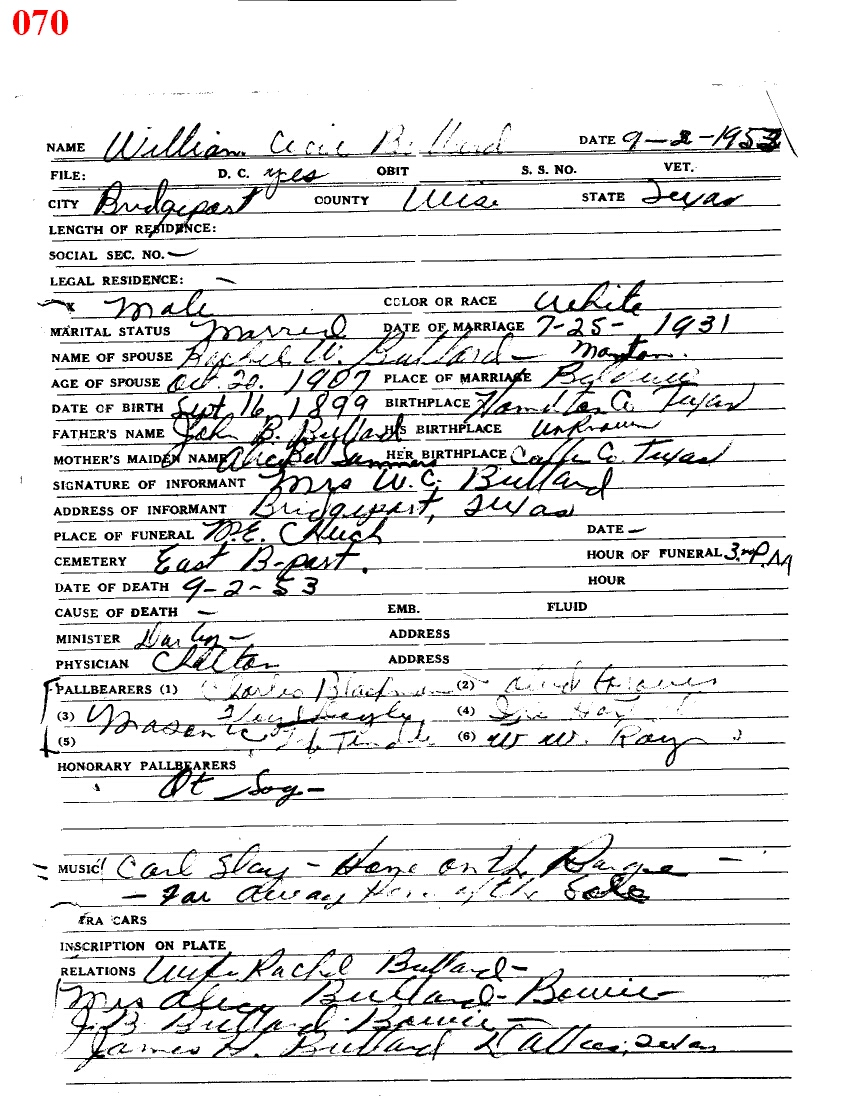 070
NAME William Cecil Bullard DATE 9-2-1953
FILE: D. C. yes OBIT S. S. NO. VET.
CITY Bridgeport COUNTY Wise STATE Texas
LENGTH OF RESIDENCE:
SOCIAL SEC. NO. —
LEGAL RESIDENCE: —
Male COLOR OR RACE White
MARITAL STATUS Married DATE OF MARRIAGE 7-25- 1931
NAME OF SPOUSE Rachel W. Bullard —
AGE OF SPOUSE Oct 20, 1907 PLACE OF MARRIAGE
DATE OF BIRTH Sept 16, 1899 BIRTHPLACE Hamilton Co Texas
FATHER'S NAME John B. Bullard HIS BIRTHPLACE Unknown
MOTHER'S MAIDEN NAME Summers HER BIRTHPLACE Co. Texas
SIGNATURE OF INFORMANT Mrs W. C. Bullard
ADDRESS OF INFORMANT Bridgeport, Texas
PLACE OF FUNERAL M.E. Church DATE —
CEMETERY East B-port. HOUR OF FUNERAL 3 P.M
DATE OF DEATH 9-2-53 HOUR
CAUSE OF DEATH — EMB. FLUID
MINISTER ADDRESS
PHYSICIAN ADDRESS
PALLBEARERS (1) Charles (2)
(3) Masonic (4)
(5) (6) W. W. Ray
HONORARY PALLBEARERS
MUSIC Carl Slay - Home on the Range —
- Far Away Home of the Sole
RA CARS
INSCRIPTION ON PLATE
RELATIONS Wife Rachel Bullard —
Mrs Bullard - Bowie
J.B Bullard - Bowie —
James H. Bullard Dallas, Texas